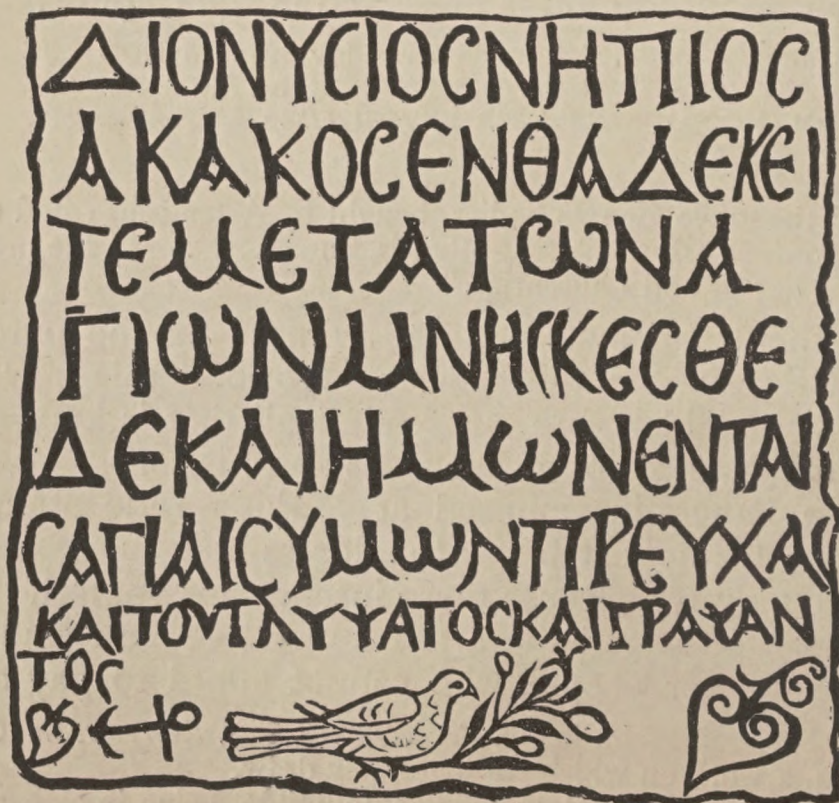 ΔΙΟΝΥСΙΟСΝΗΠΙΟС
ΑΚΑΚΟСΕΝΘΑΔΕΚΕΙ
ΤΕΜΕΤΑΤωΝΑ
ΓΙωΝΜΝΗСΚΕСΘΕ
ΔΕΚΑΙΗΜωΝΕΝΤΑΙ
СΑΓΙΑΙСΥΜωΝΠΡΕΥΧΑС
ΚΑΙΤΟΥΓΛΥΨΑΤΟСΚΑΙΓΡΑΨΑΝ
ΤΟС